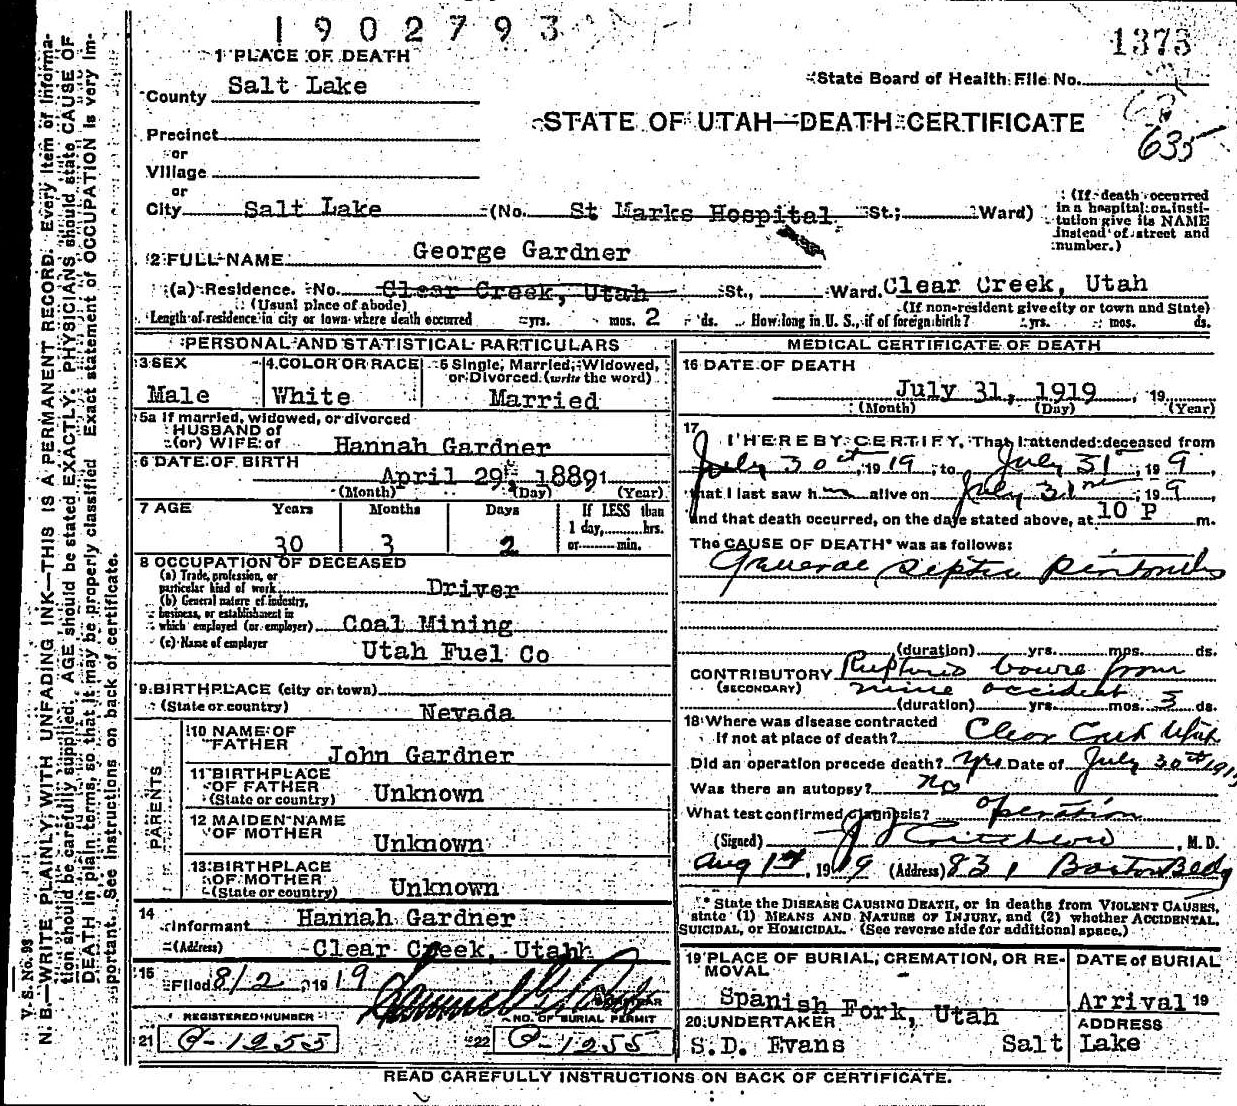 1902793
1373
1 PLACE OF DEATH
State Board of Health File No.
County Salt Lake
STATE OF UTAH—DEATH CERTIFICATE
635
Precinct
or
Village
or
City Salt Lake (No. St Marks Hospital St.; Ward)
(If death occurred in a hospital or insti-
tution give its NAME
instead of street and
number.)
2 FULL NAME George Gardner
(a) Residence. No. Clear Creek, Utah St., Ward. Clear Creek, Utah
(Usual place of abode) (If non-resident give city or town and State)
Length of residence in city or town where death occurred yrs. mos. 2 ds. How long in U. S., if of foreign birth? yrs. mos. ds.
PERSONAL AND STATISTICAL PARTICULARS
3 SEX 4 COLOR OR RACE 5 Single, Married, Widowed,
or Divorced (write the word)
Male White Married
5a If married, widowed, or divorced
HUSBAND of
(or) WIFE of Hannah Gardner
6 DATE OF BIRTH
April 29, 1889
(Month) (Day) (Year)
7 AGE Years Months Days If LESS than
1 day, hrs.
30 3 2 or min.
8 OCCUPATION OF DECEASED
(a) Trade, profession, or
particular kind of work Driver
(b) General nature of industry,
business, or establishment in
which employed (or employer) Coal Mining
(c) Name of employer Utah Fuel Co
9 BIRTHPLACE (city or town)
(State or country) Nevada
PARENTS
10 NAME OF
FATHER John Gardner
11 BIRTHPLACE
OF FATHER
(State or country) Unknown
12 MAIDEN NAME
OF MOTHER Unknown
13 BIRTHPLACE
OF MOTHER
(State or country) Unknown
14
Informant Hannah Gardner
(Address) Clear Creek, Utahh
15
Filed 8/2, 1919
REGISTRAR
REGISTERED NUMBER NO. OF BURIAL PERMIT
21 C-1255 22 C-1255
MEDICAL CERTIFICATE OF DEATH
16 DATE OF DEATH
July 31, 1919, 19
(Month) (Day) (Year)
17
I HEREBY CERTIFY, That I attended deceased from
July 30th, 1919, to July 31st, 199,
that I last saw h alive on July 31, 199,
and that death occurred, on the date stated above, at 10 P m.
The CAUSE OF DEATH* was as follows:
General Septic Peritonitis
(duration) yrs. mos. ds.
CONTRIBUTORY Ruptured bowel from
(SECONDARY) mine accident
(duration) yrs. mos. 3 ds.
18 Where was disease contracted
If not at place of death? Clear Creek Utah
Did an operation precede death? Yes Date of July 30th 1919
Was there an autopsy? No
What test confirmed diagnosis? Operation
(Signed) J J Critchlow, M. D.
Aug 1st, 1919 (Address) 831 Boston Bldg
* State the DISEASE CAUSING DEATH, or in deaths from VIOLENT CAUSES,
state (1) MEANS AND NATURE OF INJURY, and (2) whether ACCIDENTAL,
SUICIDAL, or HOMICIDAL. (See reverse side for additional space.)
19 PLACE OF BURIAL, CREMATION, OR RE-
MOVAL DATE of BURIAL
Spanish Fork, Utah Arrival 19
20 UNDERTAKER ADDRESS
S.D. Evans Salt Lake
READ CAREFULLY INSTRUCTIONS ON BACK OF CERTIFICATE.
V. S. No. 98
N. B.—WRITE PLAINLY, WITH UNFADING INK—THIS IS A PERMANENT RECORD. Every item of informa-
tion should be carefully supplied. AGE should be stated EXACTLY. PHYSICIANS should state CAUSE OF
DEATH in plain terms, so that it may be properly classified. Exact statement of OCCUPATION is very im-
portant. See instructions on back of certificate.